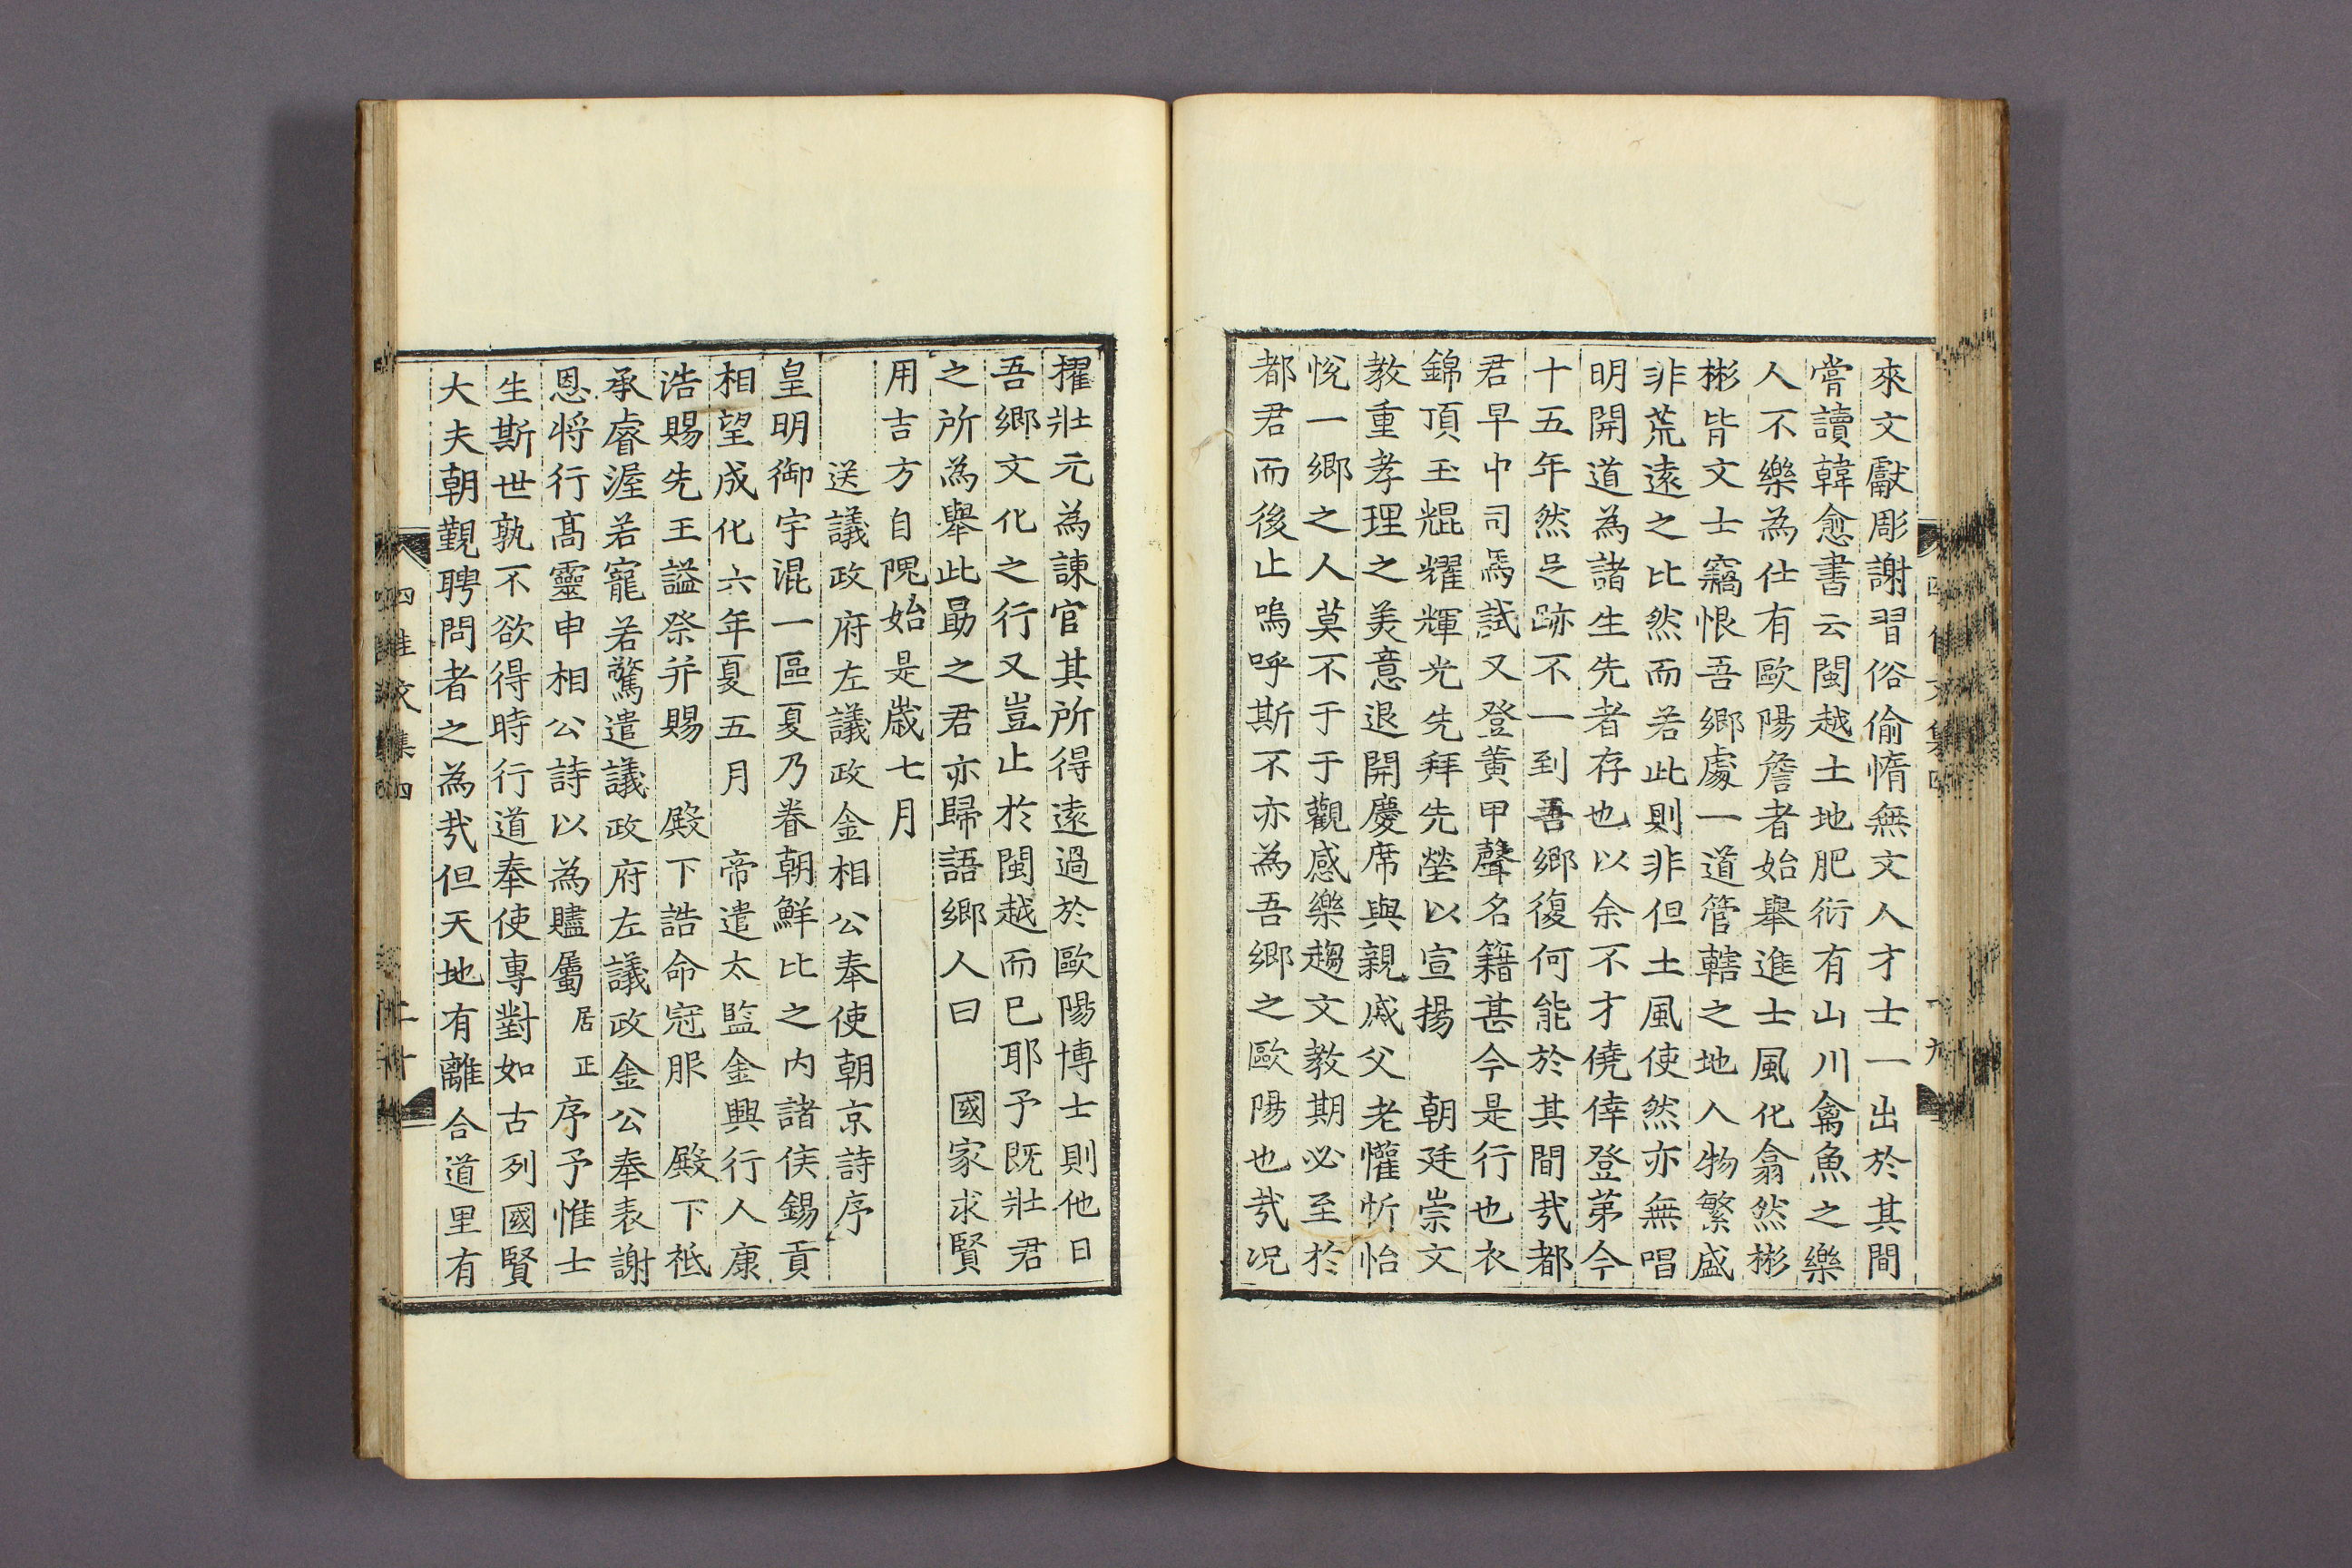 來文獻彫謝習俗偷惰無文人才士一出於其間
嘗讀韓愈書云閩越土地肥衍有山川禽魚之樂
人不樂為仕有歐陽詹者始舉進士風化翕然彬
彬皆文士竊恨吾鄉處一道管轄之地人物繁盛
非荒遠之比然而若此則非但土風使然亦無唱
明開道為諸生先者存也以余不才僥倖登第今
十五年然足跡不一到吾鄉復何能於其間㢤都
君早中司馬試又登黃甲聲名籍甚今是行也衣
錦頂玉焜耀輝光先拜先塋以宣揚 朝廷崇文
教重孝理之美意退開慶席與親戚父老懽忻怡
悅一鄉之人莫不于于觀感樂趨文教期必至於
都君而後止嗚呼斯不亦為吾鄉之歐陽也㢤况
擢壯元為諫官其所得遠過於歐陽博士則他日
吾鄉文化之行又豈止於閩越而已耶予既壯君
之所為舉此勗之君亦歸語鄉人曰 國家求賢
用吉方自隗始是歲七月
送議政府左議政金相公奉使朝京詩序
皇明御宇混一區夏乃眷朝鮮比之內諸侯錫貢
相望成化六年夏五月 帝遣太監金興行人康
浩賜先王謚祭并賜 殿下誥命冠服 殿下祗
承睿渥若寵若驚遣議政府左議政金公奉表謝
恩將行高靈申相公詩以為贐屬居正序予惟士
生斯世孰不欲得時行道奉使專對如古列國賢
大夫朝覲聘問者之為㢤但天地有離合道里有
四佳文集四
二十